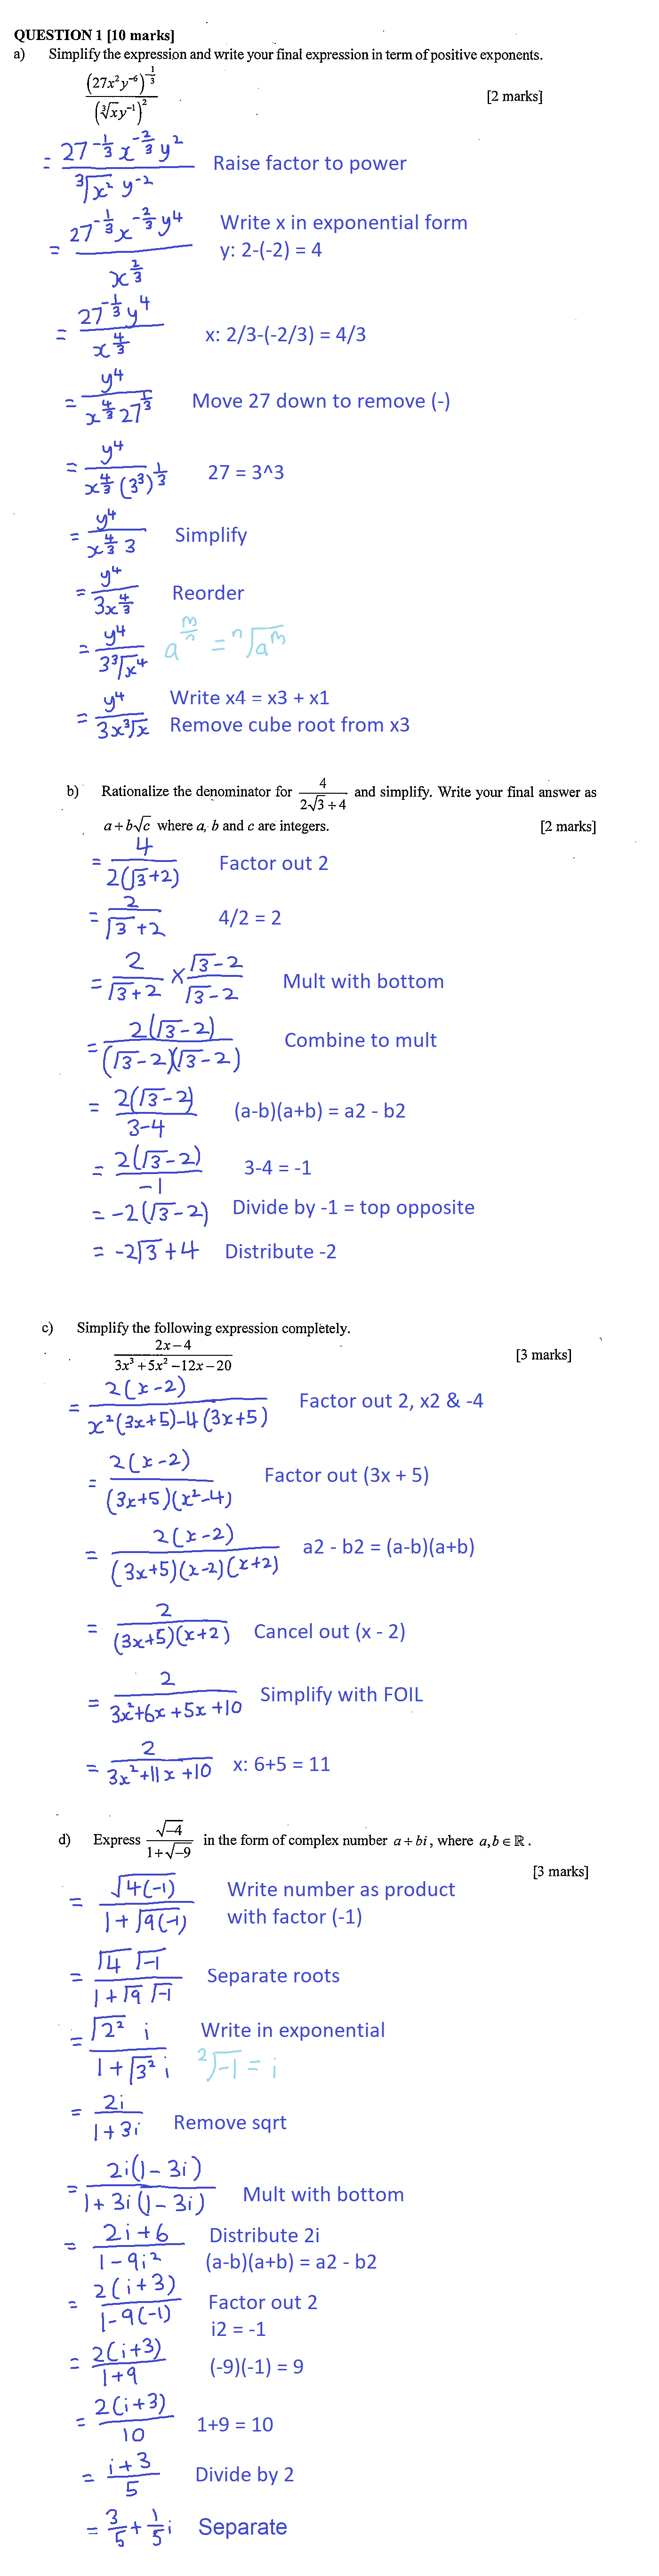 QUESTION 1 [10 marks]
a) Simplify the expression and write your final expression in term of positive exponents.
(27x²y⁻⁶)^(-1/3) / (∛x y⁻¹)² [2 marks]
= 27^(-1/3) x^(-2/3) y² / ∛x² y⁻² Raise factor to power
= 27^(-1/3) x^(-2/3) y⁴ / x^(2/3) Write x in exponential form
y: 2-(-2) = 4
= 27^(-1/3) y⁴ / x^(4/3) x: 2/3-(-2/3) = 4/3
= y⁴ / x^(4/3) 27^(1/3) Move 27 down to remove (-)
= y⁴ / x^(4/3) (3³)^(1/3) 27 = 3^3
= y⁴ / x^(4/3) 3 Simplify
= y⁴ / 3x^(4/3) Reorder
= y⁴ / 3∛x⁴ a^(m/n) = ⁿ√a^m
= y⁴ / 3x∛x Write x4 = x3 + x1
Remove cube root from x3
b) Rationalize the denominator for 4 / 2√3+4 and simplify. Write your final answer as
a+b√c where a, b and c are integers. [2 marks]
= 4 / 2(√3+2) Factor out 2
= 2 / √3+2 4/2 = 2
= 2 / √3+2 × √3-2 / √3-2 Mult with bottom
= 2(√3-2) / (√3-2)(√3-2) Combine to mult
= 2(√3-2) / 3-4 (a-b)(a+b) = a2 - b2
= 2(√3-2) / -1 3-4 = -1
= -2(√3-2) Divide by -1 = top opposite
= -2√3+4 Distribute -2
c) Simplify the following expression completely.
2x-4 / 3x³+5x²-12x-20 [3 marks]
= 2(x-2) / x²(3x+5)-4(3x+5) Factor out 2, x2 & -4
= 2(x-2) / (3x+5)(x²-4) Factor out (3x + 5)
= 2(x-2) / (3x+5)(x-2)(x+2) a2 - b2 = (a-b)(a+b)
= 2 / (3x+5)(x+2) Cancel out (x - 2)
= 2 / 3x²+6x+5x+10 Simplify with FOIL
= 2 / 3x²+11x+10 x: 6+5 = 11
d) Express √-4 / 1+√-9 in the form of complex number a+bi, where a,b∈ℝ.
[3 marks]
= √4(-1) / 1+√9(-1) Write number as product
with factor (-1)
= √4 √-1 / 1+√9 √-1 Separate roots
= √2² i / 1+√3² i Write in exponential
²√-1 = i
= 2i / 1+3i Remove sqrt
= 2i(1-3i) / 1+3i(1-3i) Mult with bottom
= 2i+6 / 1-9i² Distribute 2i
(a-b)(a+b) = a2 - b2
= 2(i+3) / 1-9(-1) Factor out 2
i2 = -1
= 2(i+3) / 1+9 (-9)(-1) = 9
= 2(i+3) / 10 1+9 = 10
= i+3 / 5 Divide by 2
= 3/5 + 1/5 i Separate